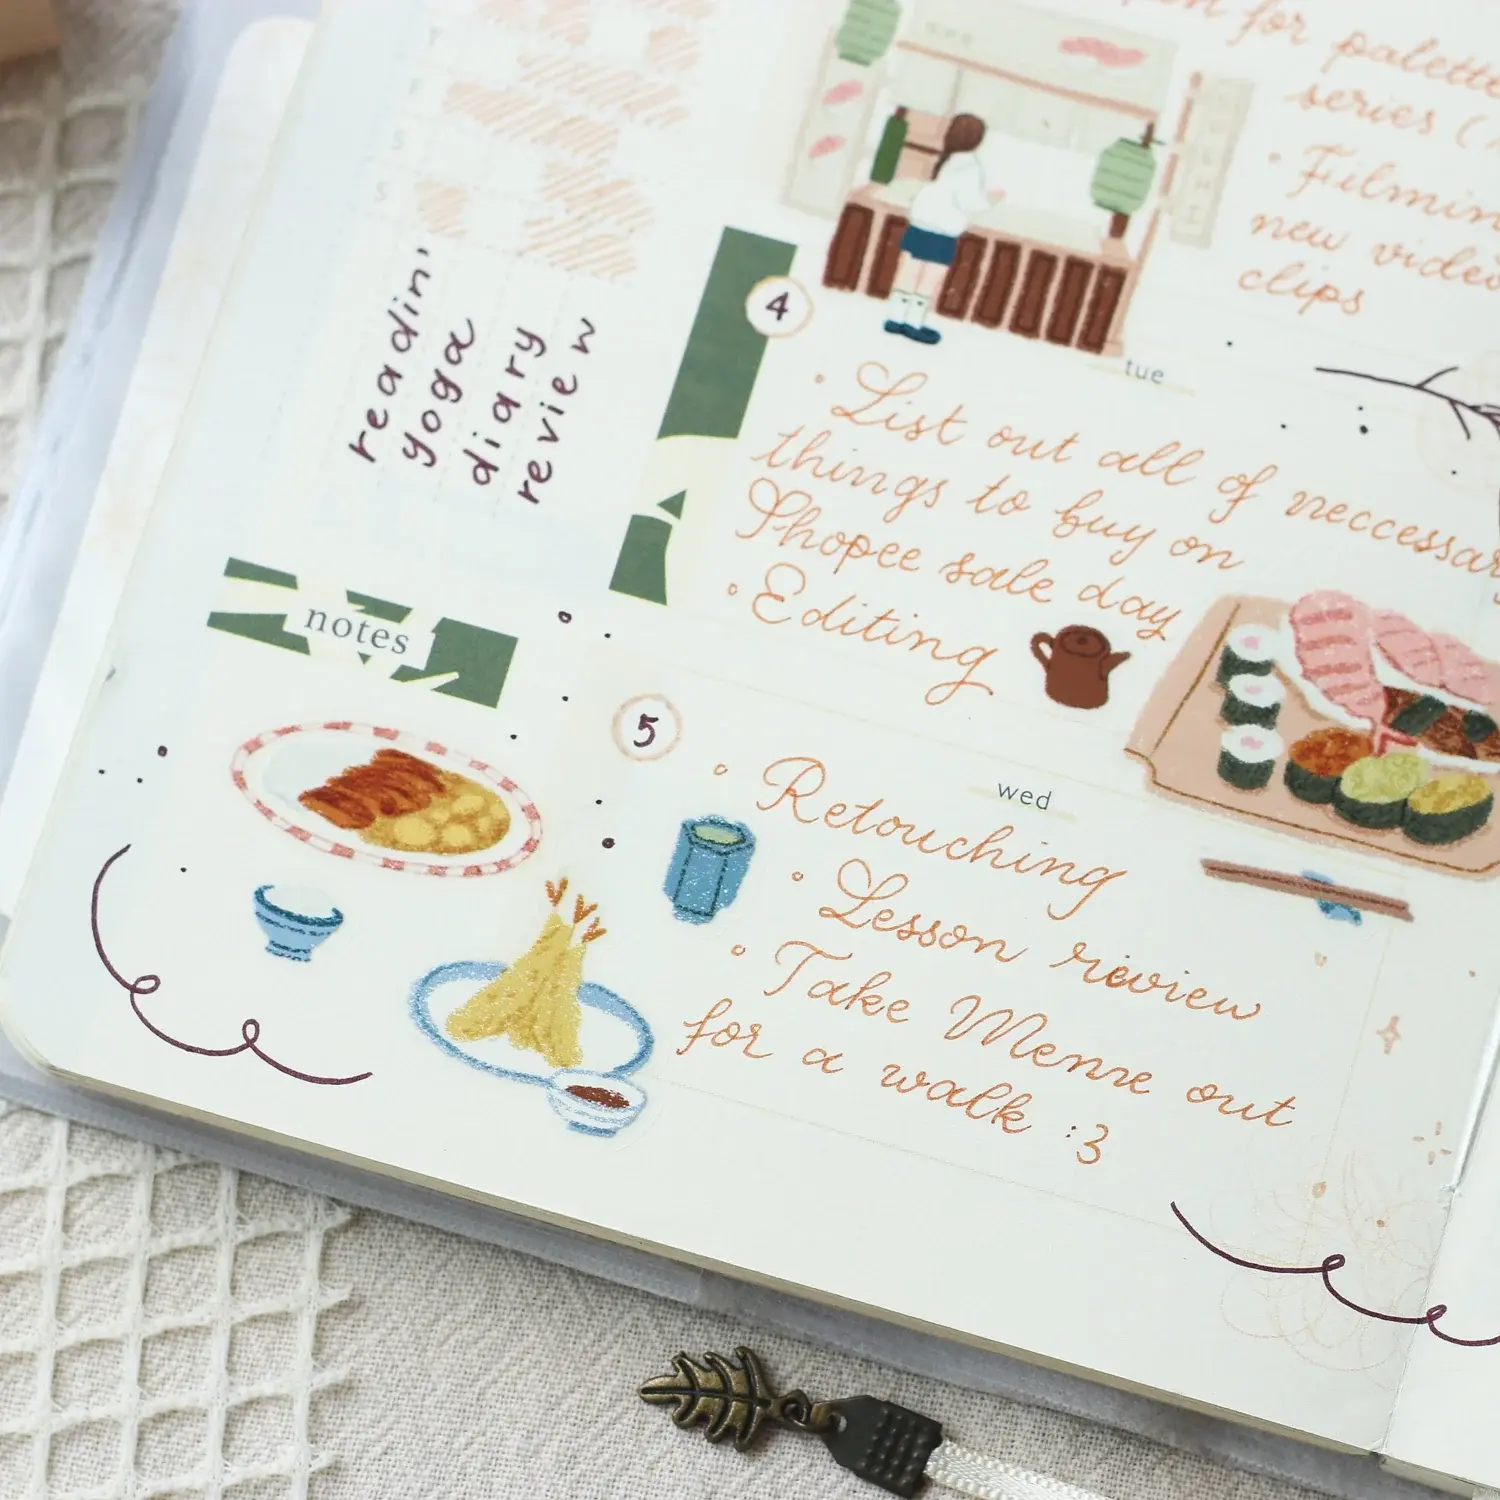 for palette
series (
• Filming
new video
clips
T
F
S
S
readin'
yoga
diary
review
notes
4
tue
• List out all of neccessary
things to buy on
Shopee sale day
• Editing
5
wed
• Retouching
• Lesson review
• Take Menre out
for a walk :3